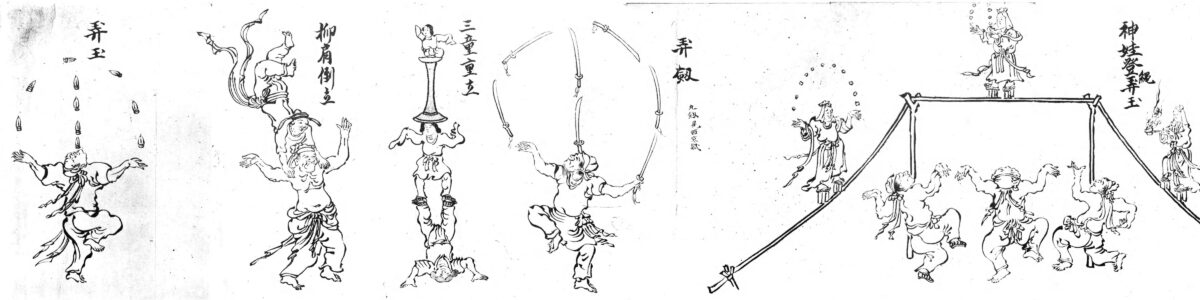 神娃登縄弄玉
弄劔
三童重立
柳肩倒立
弄玉